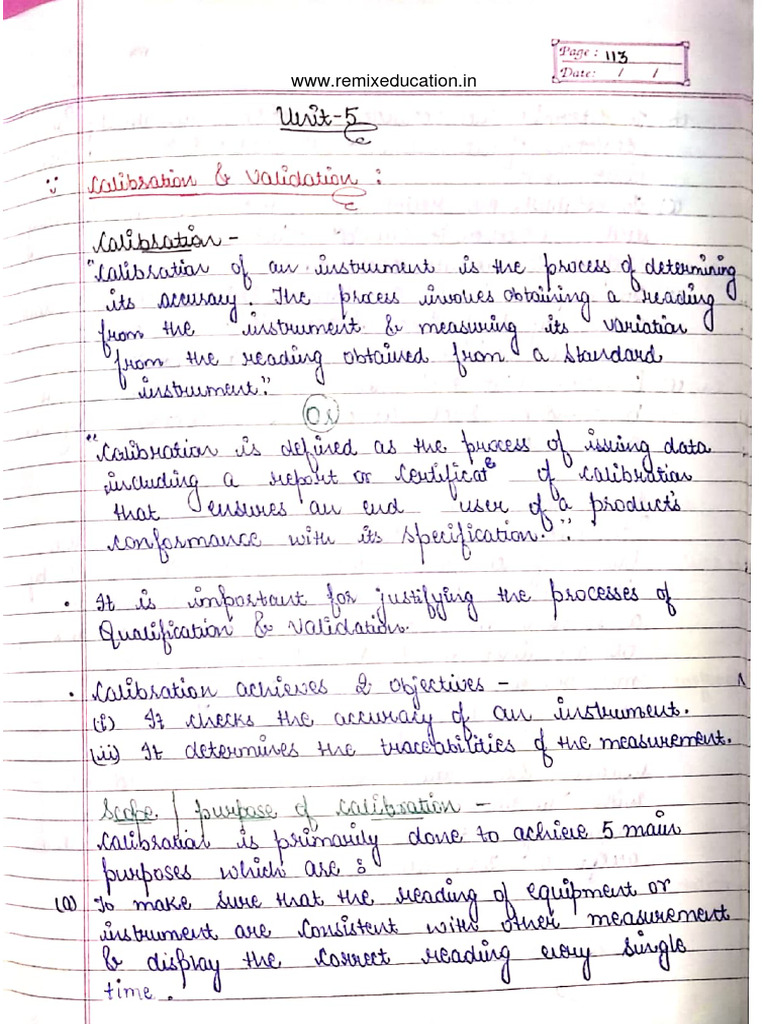 Page: 113
www.remixeducation.in
Date: / /
Unit-5
Calibration & Validation :
Calibration -
"Calibration of an instrument is the process of determining
its accuracy. The process involves obtaining a reading
from the instrument & measuring its variation
from the reading obtained from a standard
instrument."
Or
"Calibration is defined as the process of issuing data
including a report or certificate of calibration
that ensures an end user of a product's
conformance with its specification."
• It is important for justifying the processes of
Qualification & Validation.
• Calibration achieves 2 objectives -
(i) It checks the accuracy of an instrument.
(ii) It determines the traceabilities of the measurement.
Scope / purpose of calibration -
Calibration is primarily done to achieve 5 main
purposes which are :
(a) To make sure that the reading of equipment or
instrument are consistent with other measurement
& display the correct reading every single
time.